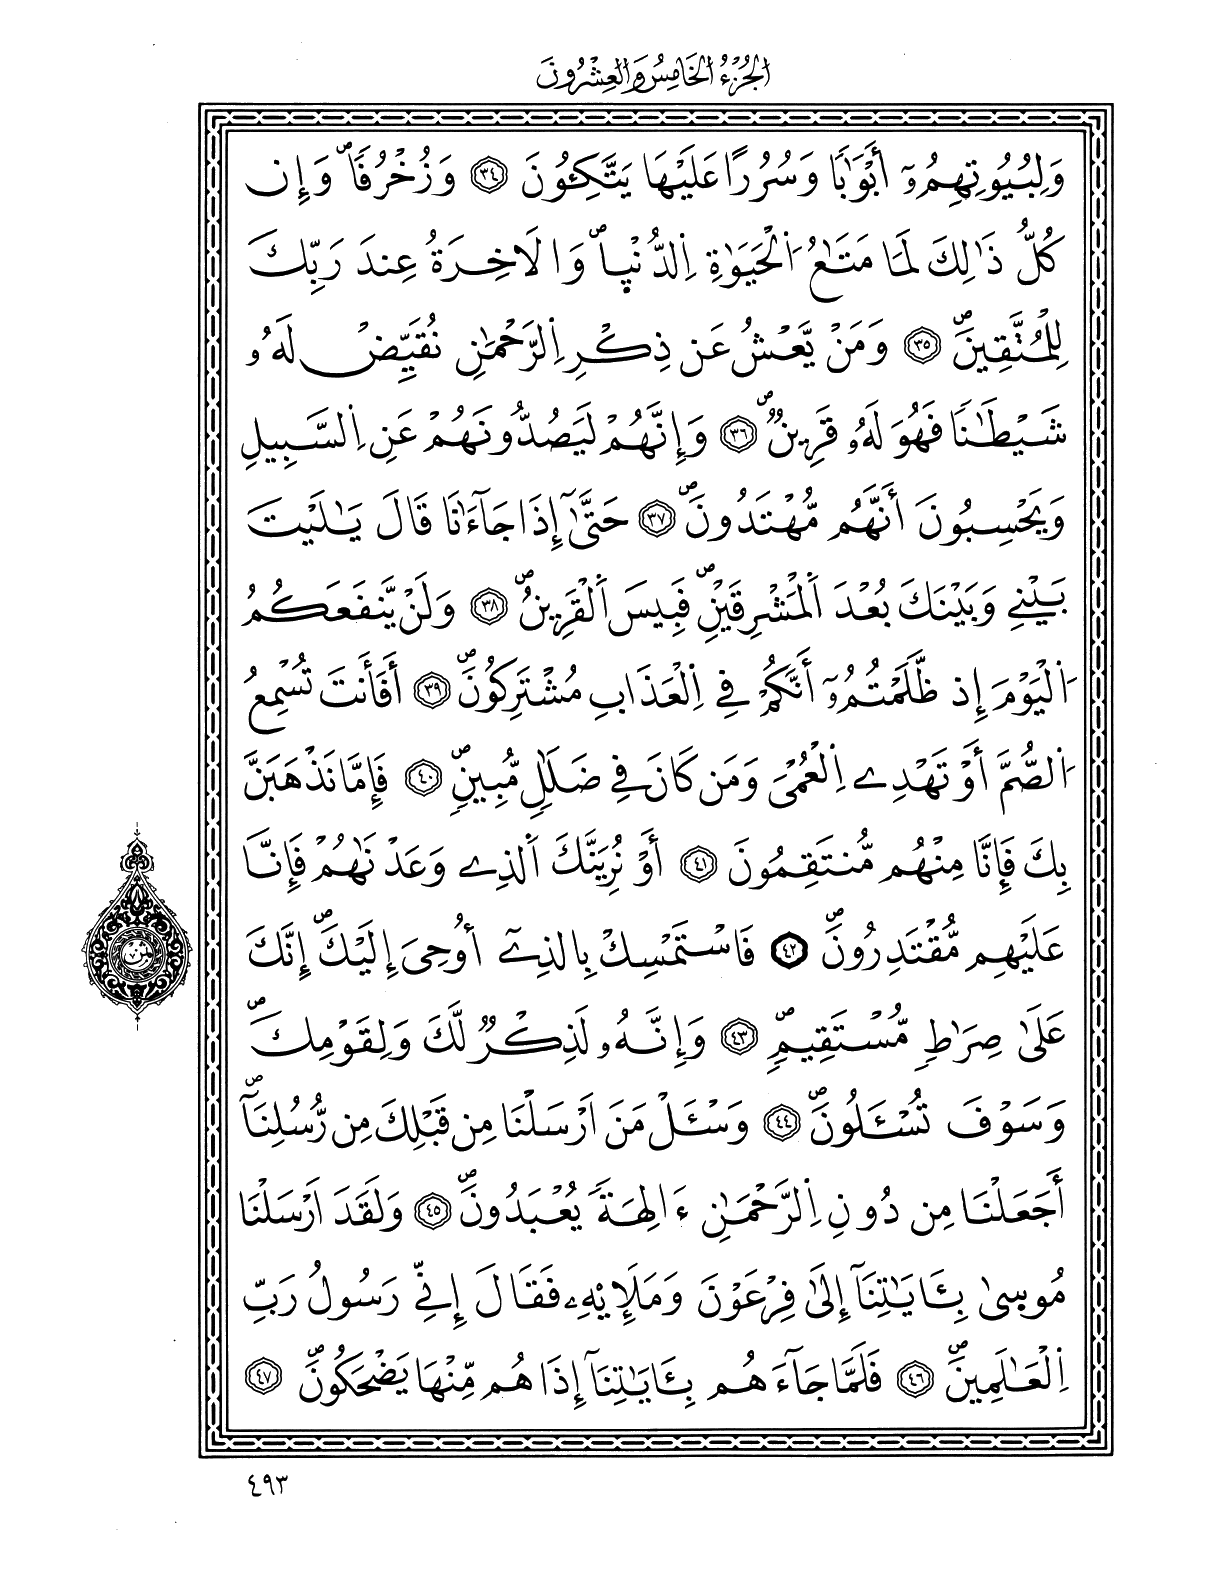 الجُزْءُ الخَامِسُ وَالعِشْرُونَ
وَلِبُيُوتِهِمُۥٓ أَبْوَٰباٗ وَسُرُراً عَلَيْهَا يَتَّكِـُٔونَ ٣٤ وَزُخْرُفاٗۖ وَإِن
كُلُّ ذَٰلِكَ لَمَا مَتَٰعُ اُ۬لْحَيَوٰةِ اِ۬لدُّنْي۪اۖ وَالَاخِرَةُ عِندَ رَبِّكَ
لِلْمُتَّقِينَۖ ٣٥ وَمَنْ يَّعْشُ عَن ذِكْرِ اِ۬لرَّحْمَٰنِ نُقَيِّضْ لَهُۥ
شَيْطَٰناٗ فَهُوَ لَهُۥ قَرِينٞۖ ٣٦ وَإِنَّهُمْ لَيَصُدُّونَهُمْ عَنِ اِ۬لسَّبِيلِ
وَيَحْسِبُونَ أَنَّهُم مُّهْتَدُونَۖ ٣٧ حَتَّىٰٓ إِذَا جَآءَٰنَا قَالَ يَٰلَيْتَ
بَيْنِے وَبَيْنَكَ بُعْدَ اَ۬لْمَشْرِقَيْنِۖ فَبِيسَ اَ۬لْقَرِينُۖ ٣٨ وَلَنْ يَّنفَعَكُمُ
اُ۬لْيَوْمَ إِذ ظَّلَمْتُمُۥٓ أَنَّكُمْ فِے اِ۬لْعَذَابِ مُشْتَرِكُونَۖ ٣٩ أَفَأَنتَ تُسْمِعُ
اُ۬لصُّمَّ أَوْ تَهْدِے اِ۬لْعُمْيَ وَمَن كَانَ فِے ضَلَٰلٖ مُّبِينٖۖ ٤٠ فَإِمَّا نَذْهَبَنَّ
بِكَ فَإِنَّا مِنْهُم مُّنتَقِمُونَ ٤١ أَوْ نُرِيَنَّكَ اَ۬لذِے وَعَدْنَٰهُمْ فَإِنَّا
عَلَيْهِم مُّقْتَدِرُونَۖ ٤٢ فَاسْتَمْسِكْ بِالذِےٓ أُوحِيَ إِلَيْكَۖ إِنَّكَ
عَلَىٰ صِرَٰطٖ مُّسْتَقِيمٖۖ ٤٣ وَإِنَّهُۥ لَذِكْرٞ لَّكَ وَلِقَوْمِكَۖ
وَسَوْفَ تُسْـَٔلُونَۖ ٤٤ وَسْـَٔلْ مَنَ اَرْسَلْنَا مِن قَبْلِكَ مِن رُّسُلِنَآۖ
أَجَعَلْنَا مِن دُونِ اِ۬لرَّحْمَٰنِ ءَالِهَةٗ يُعْبَدُونَۖ ٤٥ وَلَقَدَ اَرْسَلْنَا
مُوس۪ىٰ بِـَٔايَٰتِنَآ إِلَىٰ فِرْعَوْنَ وَمَلَإِيْهِۦ فَقَالَ إِنِّے رَسُولُ رَبِّ
اِ۬لْعَٰلَمِينَۖ ٤٦ فَلَمَّا جَآءَهُم بِـَٔايَٰتِنَآ إِذَا هُم مِّنْهَا يَضْحَكُونَۖ ٤٧
٤٩٣